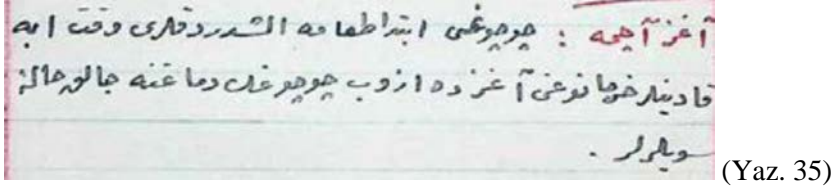 آغز آچمه : چوجوغى ابتدا طعامه الشدردقلرى وقت ابه
قادينلر خرما نوعنى آغزده ازوب چوجوغك دماغنه چالوب حالا
سويلرلر .
(Yaz. 35)